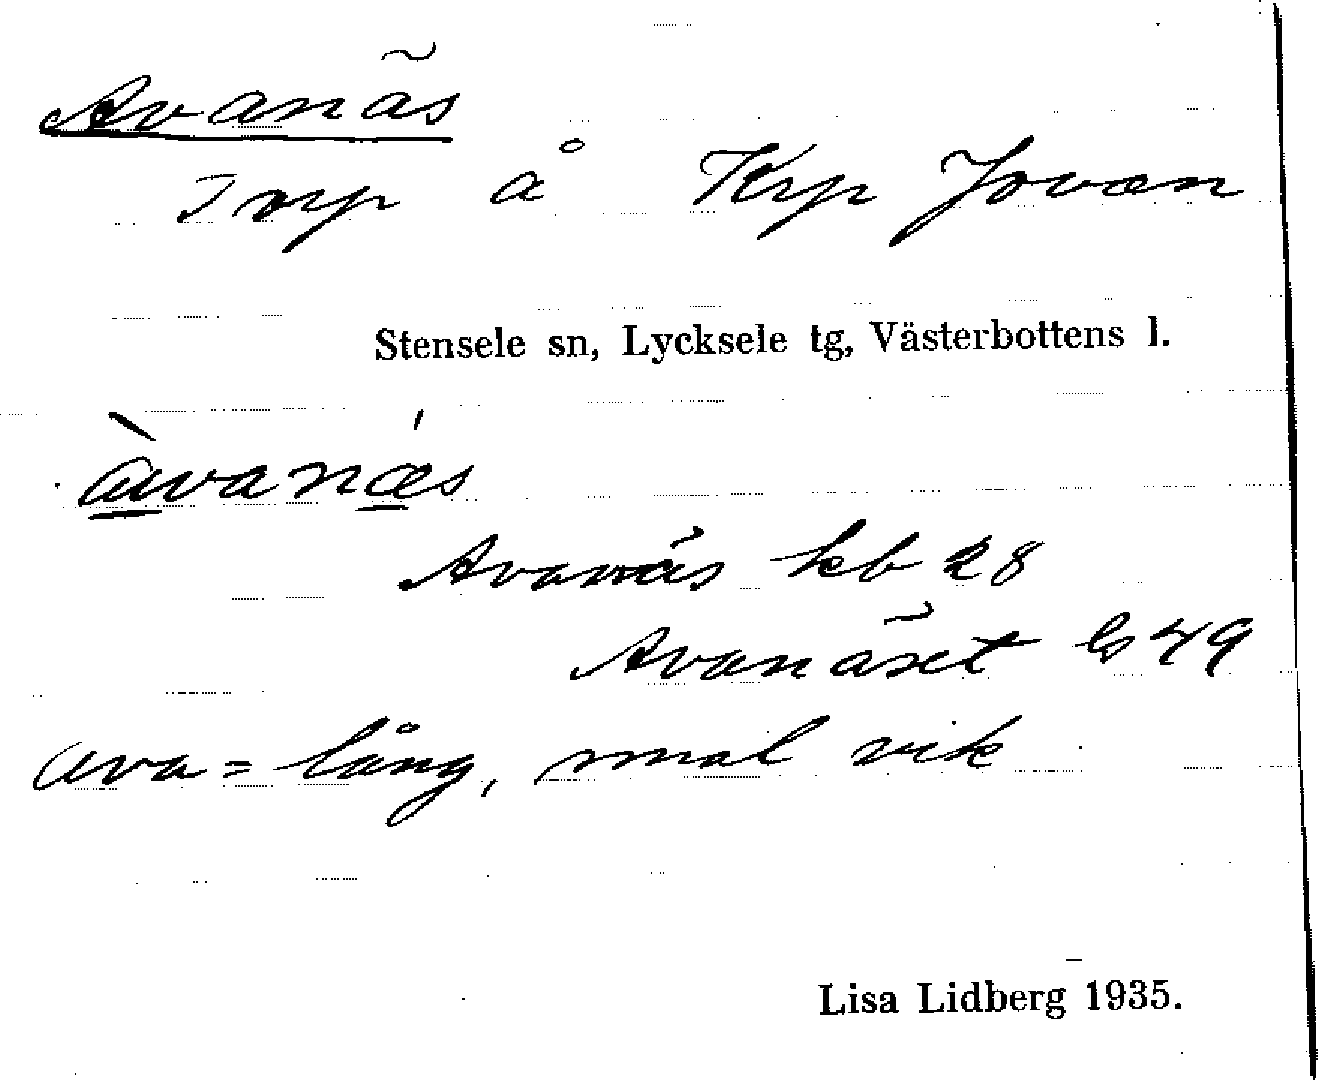 Avanäs
Torp å Krp Jovan
Stensele sn, Lycksele tg, Västerbottens l.
àvanǽs
Avanäs kb 28
Avanäset ls 49
ava = lång, smal vik
Lisa Lidberg 1935.